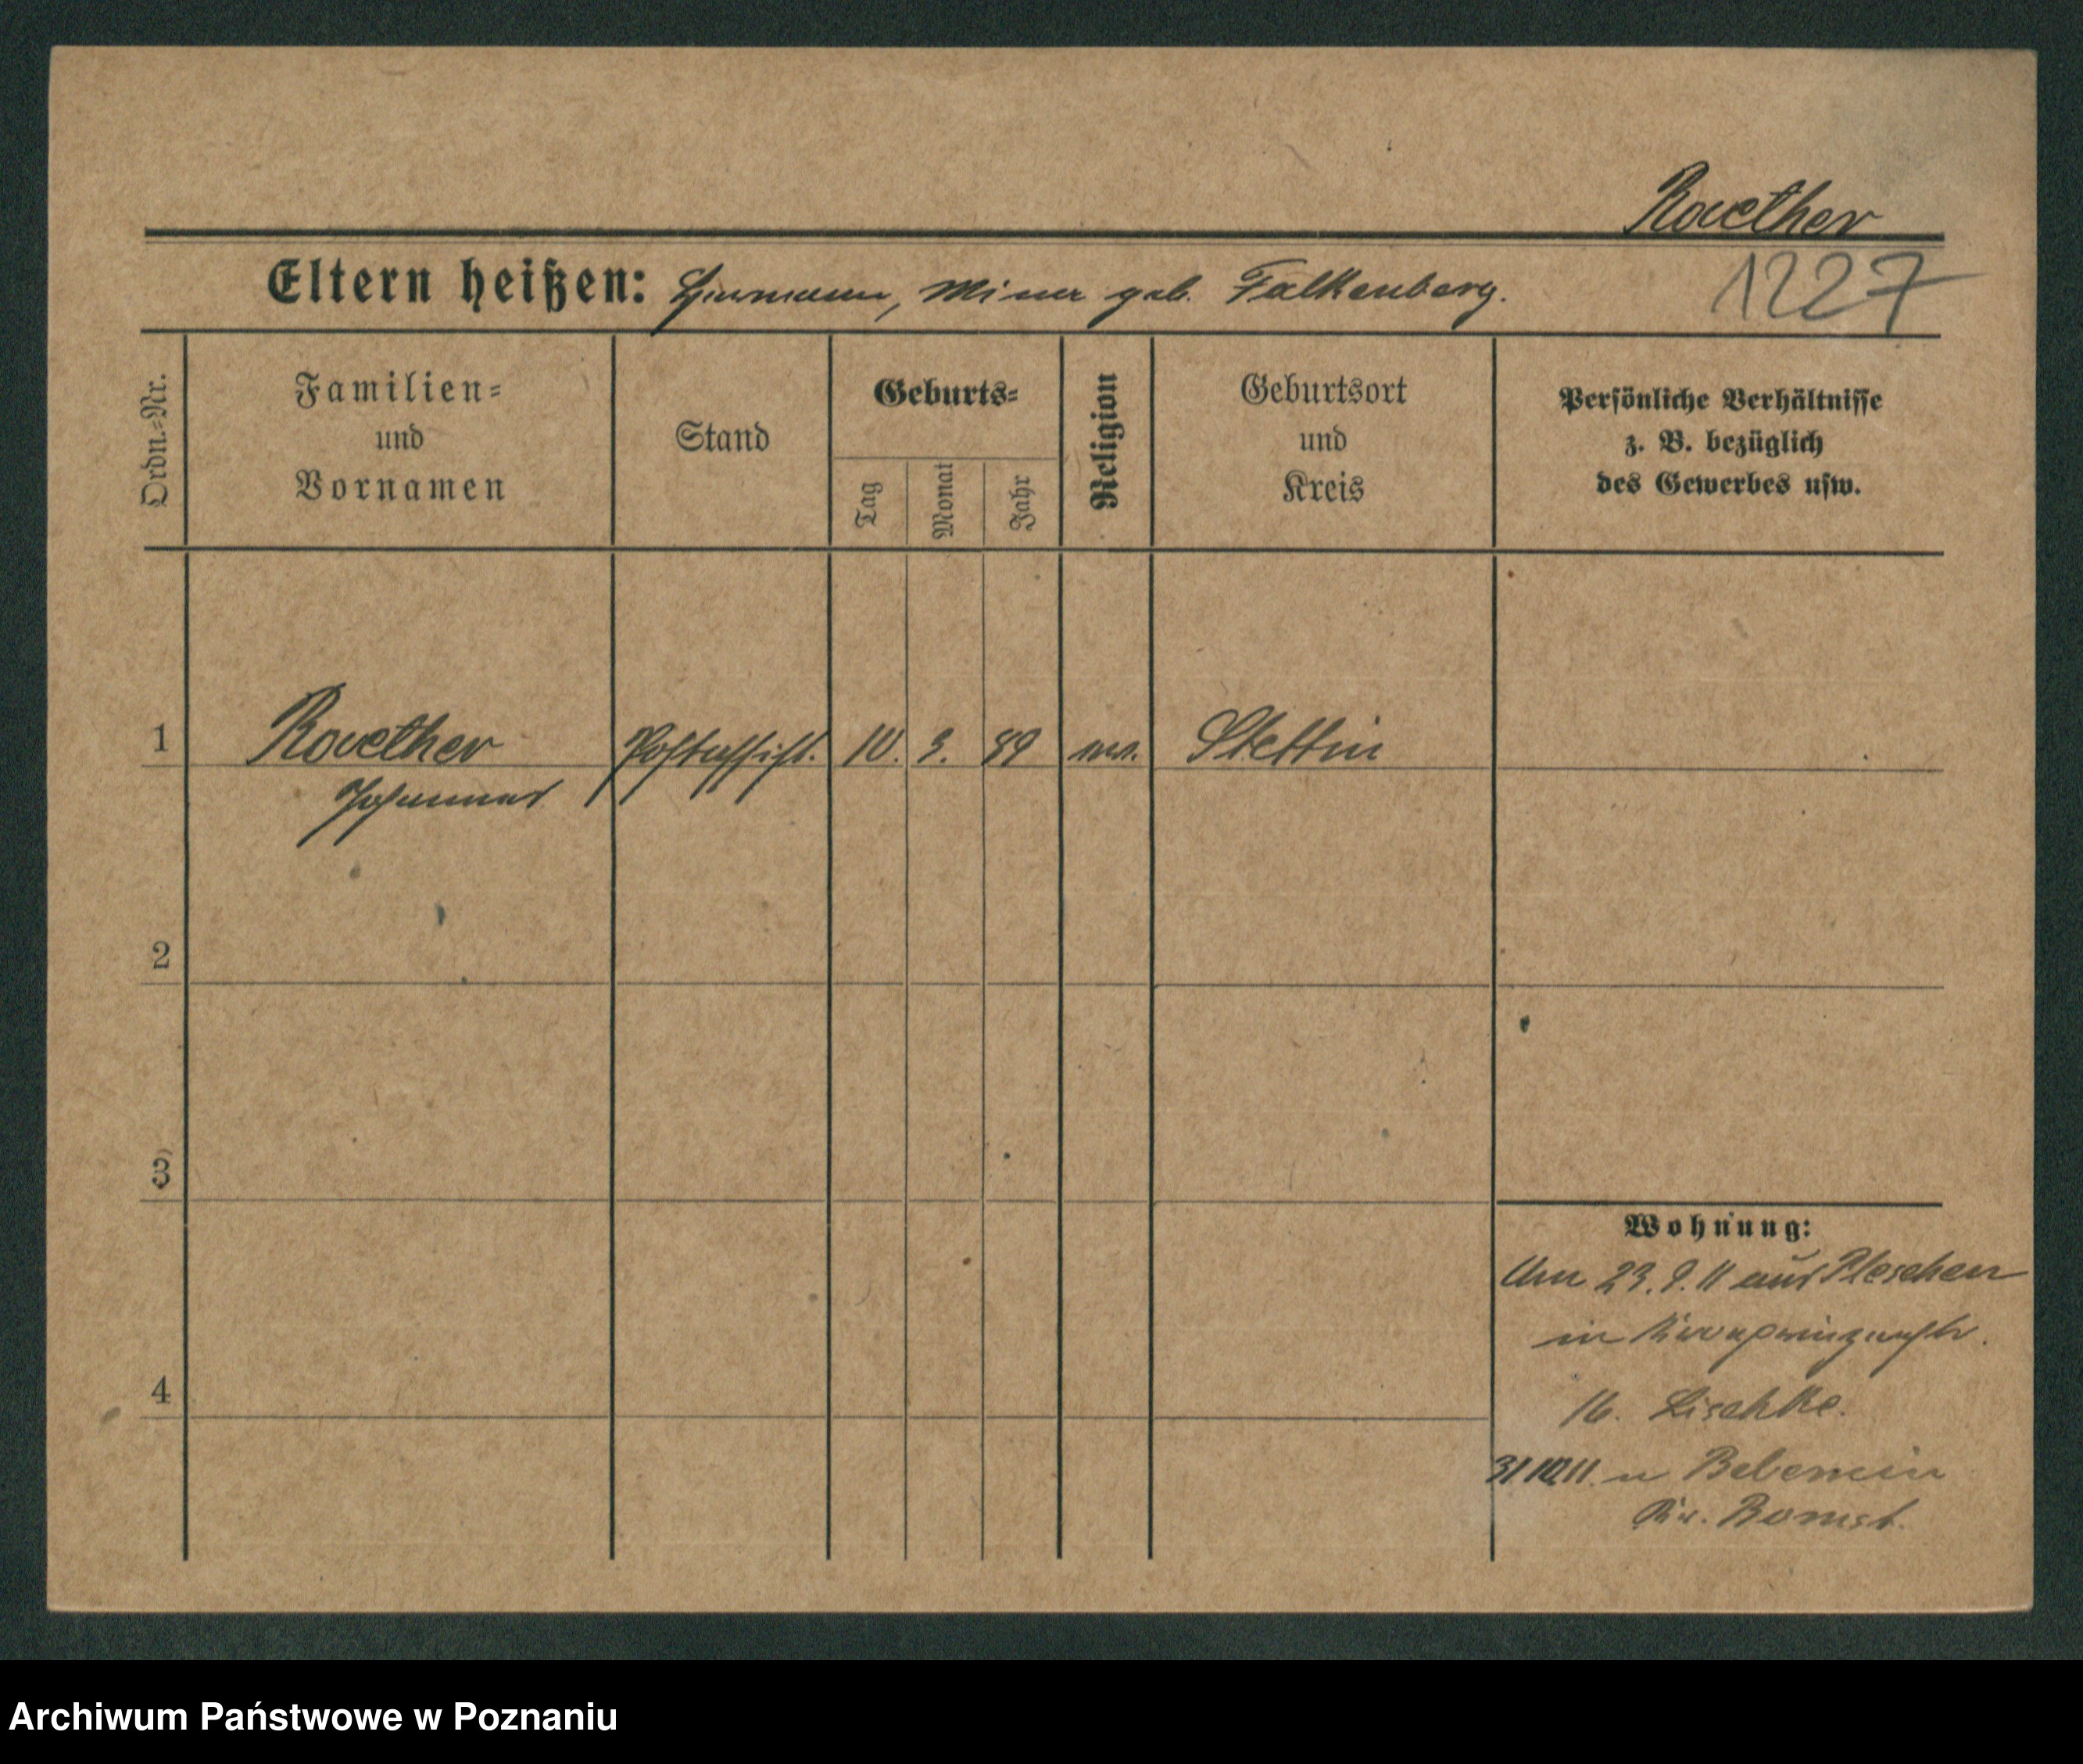 Roether
Eltern heißen: Hermann, Minna geb. Falkenberg.
1227
Ordn.-Nr.
Familien-
und
Vornamen
Stand
Geburts-
Tag
Monat
Jahr
Religion
Geburtsort
und
Kreis
Persönliche Verhältnisse
z. B. bezüglich
des Gewerbes usw.
1 Roether Postassist. 10. 3. 89 Stettin
Johannes
2
3
4
Wohnung:
23. 9. 11 aus Pleschen
in Kronprinzenstr.
16. Lischke.
31 10 11. n
Kr. Bomst.
Archiwum Państwowe w Poznaniu